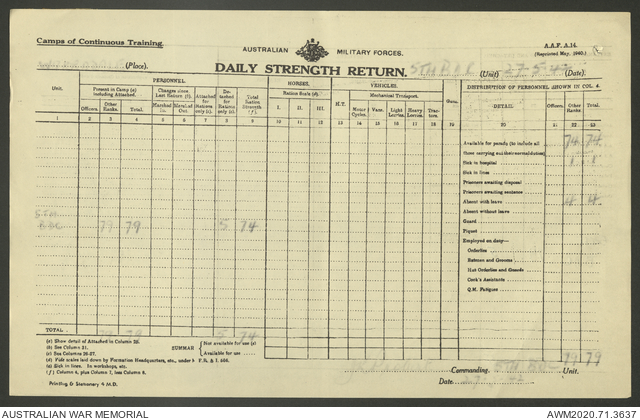 Camps of Continuous Training.
AUSTRALIAN MILITARY FORCES.
A.A.F. A.14.
(Reprinted May, 1940.)
(Place).
DAILY STRENGTH RETURN.
(Unit) 27-5- (Date).
Unit.
PERSONNEL.
HORSES.
VEHICLES.
Guns.
DISTRIBUTION OF PERSONNEL SHOWN IN COL. 4.
Present in Camp (a) including Attached.
Changes since Last Return (b).
Attached for Rations only (c).
Detached for Rations only (c).
Total Ration Strength (f).
Ration Scale (d).
H.T.
Mechanical Transport.
DETAIL
Officers.
Other Ranks.
Total.
Officers.
Other Ranks.
Total.
Marched In.
Marched Out.
I.
II.
III.
Motor Cycles.
Vans.
Light Lorries.
Heavy Lorries.
Tractors.
1 2 3 4 5 6 7 8 9 10 11 12 13 14 15 16 17 18 19 20 21 22 23
Available for parade (to include all those carrying out their normal duties) 74 74
Sick in hospital 1 1
Sick in lines
Prisoners awaiting disposal
Prisoners awaiting sentence
Absent with leave 4 4
Absent without leave
Guard
Piquet
Employed on duty—
Orderlies
Batmen and Grooms
Hut Orderlies and Guards
Cook's Assistants
Q.M. Fatigues
5TH 79 79 5 74
TOTAL 79 79 5 74
(a) Show detail of Attached in Column 20.
(b) See Column 21.
(c) See Columns 26-27.
(d) Fair scales laid down by Formation Headquarters, etc., under
(e) Sick in lines. In workshops, etc.
(f) Column 4, plus Column 7, less Column 8.
SUMMAR
Not available for use (e)
Available for use
79 79
Commanding Unit.
Date
Printing & Stationery 4 M.D.
AUSTRALIAN WAR MEMORIAL
AWM2020.71.3637